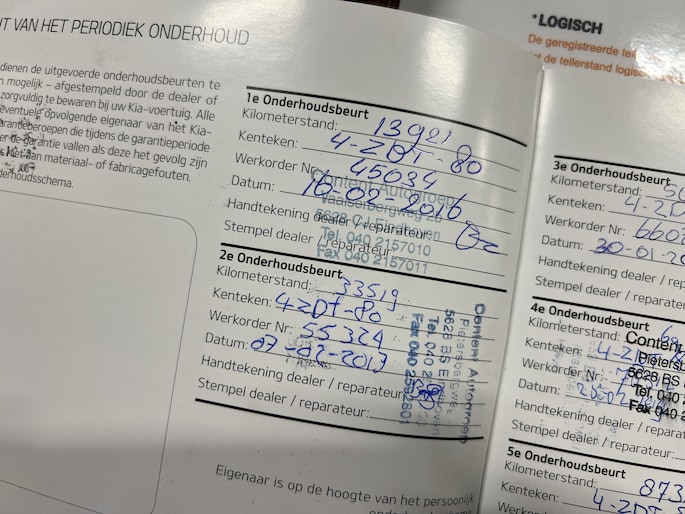 T VAN HET PERIODIEK ONDERHOUD
dienen de uitgevoerde onderhoudsbeurten te
mogelijk – afgestempeld door de dealer of
zorgvuldig te bewaren bij uw Kia-voertuig. Alle
eventuele opvolgende eigenaar van het Kia-
garantieberoepen die tijdens de garantieperiode
garantie vallen als deze het gevolg zijn
aan materiaal- of fabricagefouten.
1e Onderhoudsbeurt
Kilometerstand: 13901
Kenteken: 4-ZDT-80
Werkorder Nr: 45034
Datum: 16-02-2016
Handtekening dealer / reparateur:
Stempel dealer / reparateur:
Content Autogroep
Vaalserbergweg
5628 CJ Eindhoven
Tel. 040 2157010
Fax 040 2157011
2e Onderhoudsbeurt
Kilometerstand: 33519
Kenteken: 4ZDT-80
Werkorder Nr: 55324
Datum: 07-02-2017
Handtekening dealer / reparateur:
Stempel dealer / reparateur:
Content Autogroep
5628 BS
Tel. 040
Fax 040 2592801
Eigenaar is op de hoogte van het persoonlijk
*LOGISCH
De geregistreerde
de tellerstand
3e Onderhoudsbeurt
Kilometerstand:
Kenteken: 4-ZD
Werkorder Nr: 660
Datum: 30-01-20
Handtekening dealer / repa
Stempel dealer / reparate
4e Onderhoudsbeurt
Kilometerstand:
Kenteken: 4-Z
Werkorder Nr:
Datum:
Handtekening dealer / reparat
Stempel dealer / reparateur:
Content
Pieters
5628 BS
Tel. 040
Fax 040
5e Onderhoudsbeurt
Kilometerstand: 873
Kenteken: 4-ZDT
Werkorder